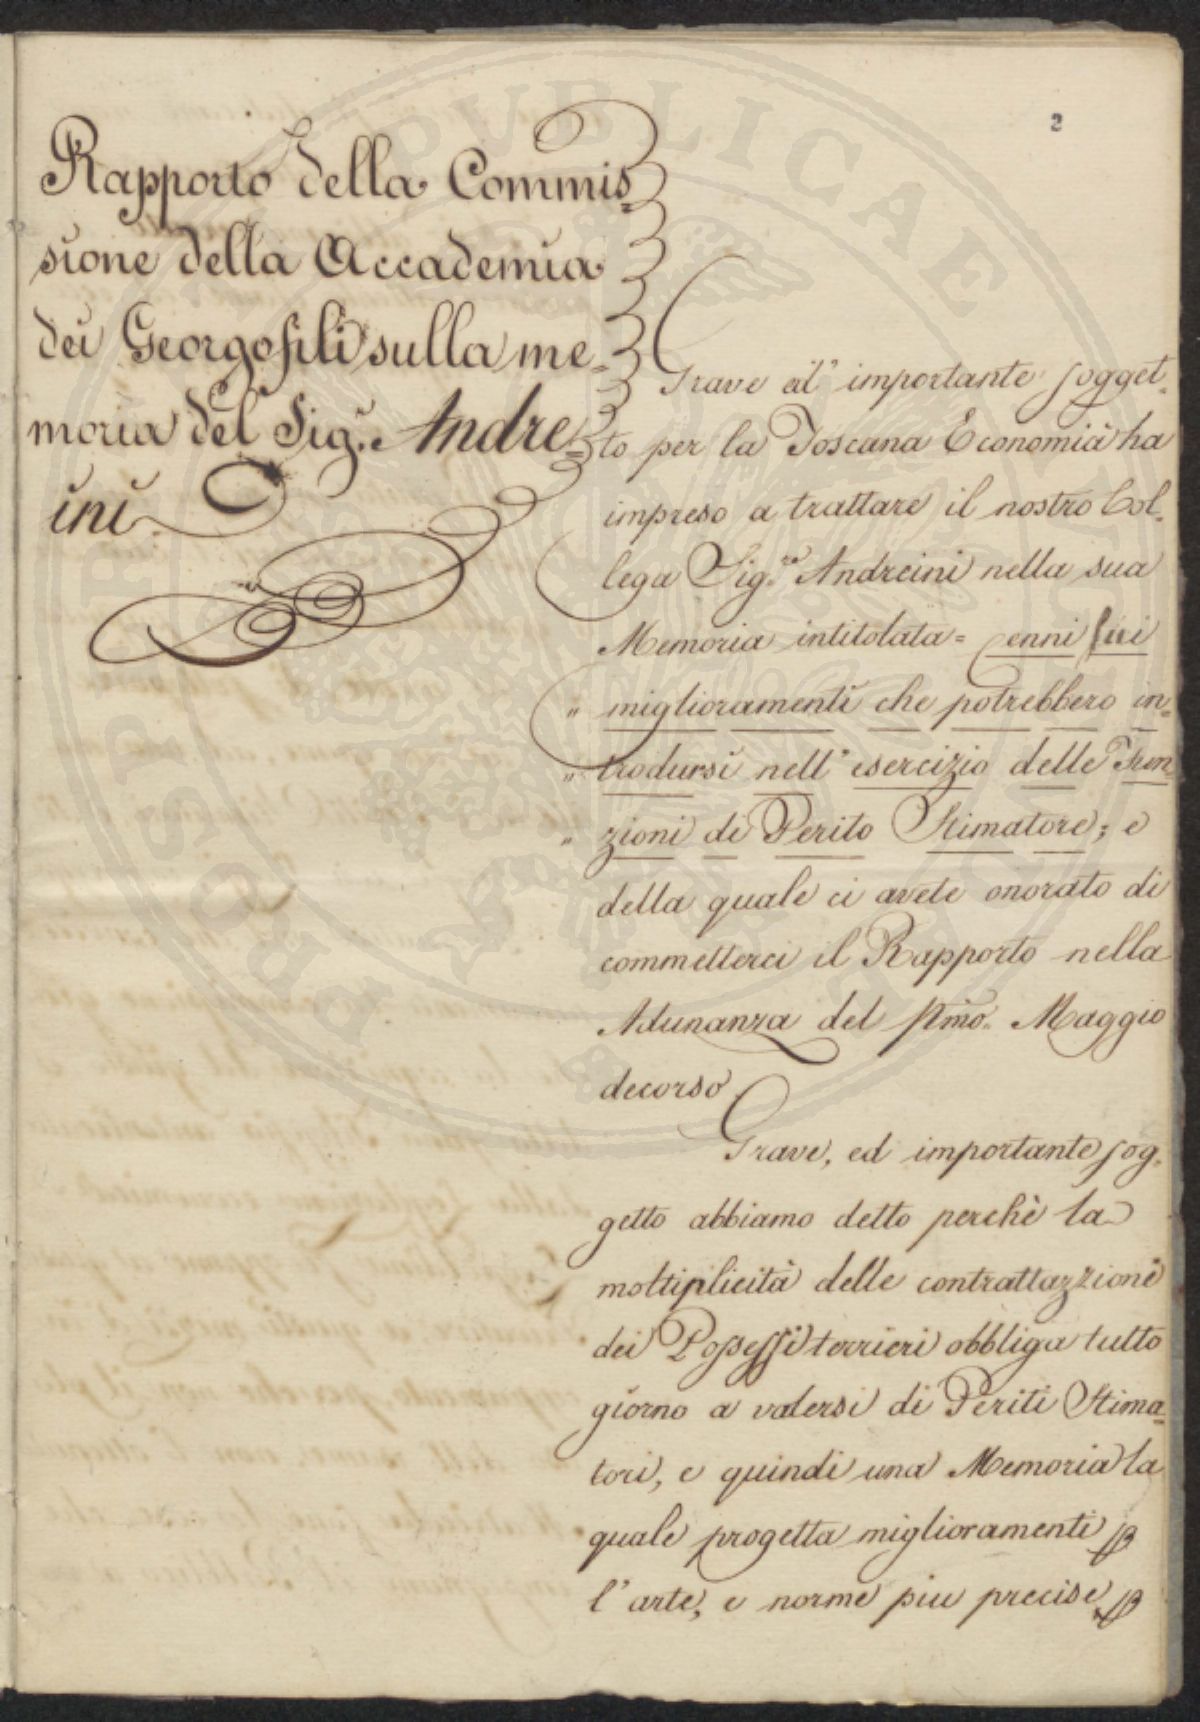 2
Rapporto della Commis=
sione della Accademia
dei Georgofili sulla me=
moria del Sig.r Andre=
ini.
Grave ed importante sogget=
to per la Toscana Economia ha
impreso a trattare il nostro Col=
lega Sig.re Andreini nella sua
Memoria intitolata = Cenni sui
" miglioramenti che potrebbero in=
" trodursi nell'esercizio delle Fun=
" zioni di Perito Stimatore; e
della quale ci avete onorato di
commetterci il Rapporto nella
Adunanza del Pmo. Maggio
decorso.
Grave, ed importante sog=
getto abbiamo detto perchè la
moltiplicità delle contrattazzioni
dei Possessi terrieri obbliga tutto
giorno a valersi di Periti Stima=
tori, e quindi una Memoria la
quale progetta miglioramenti p
l'arte, e norme piu precise p